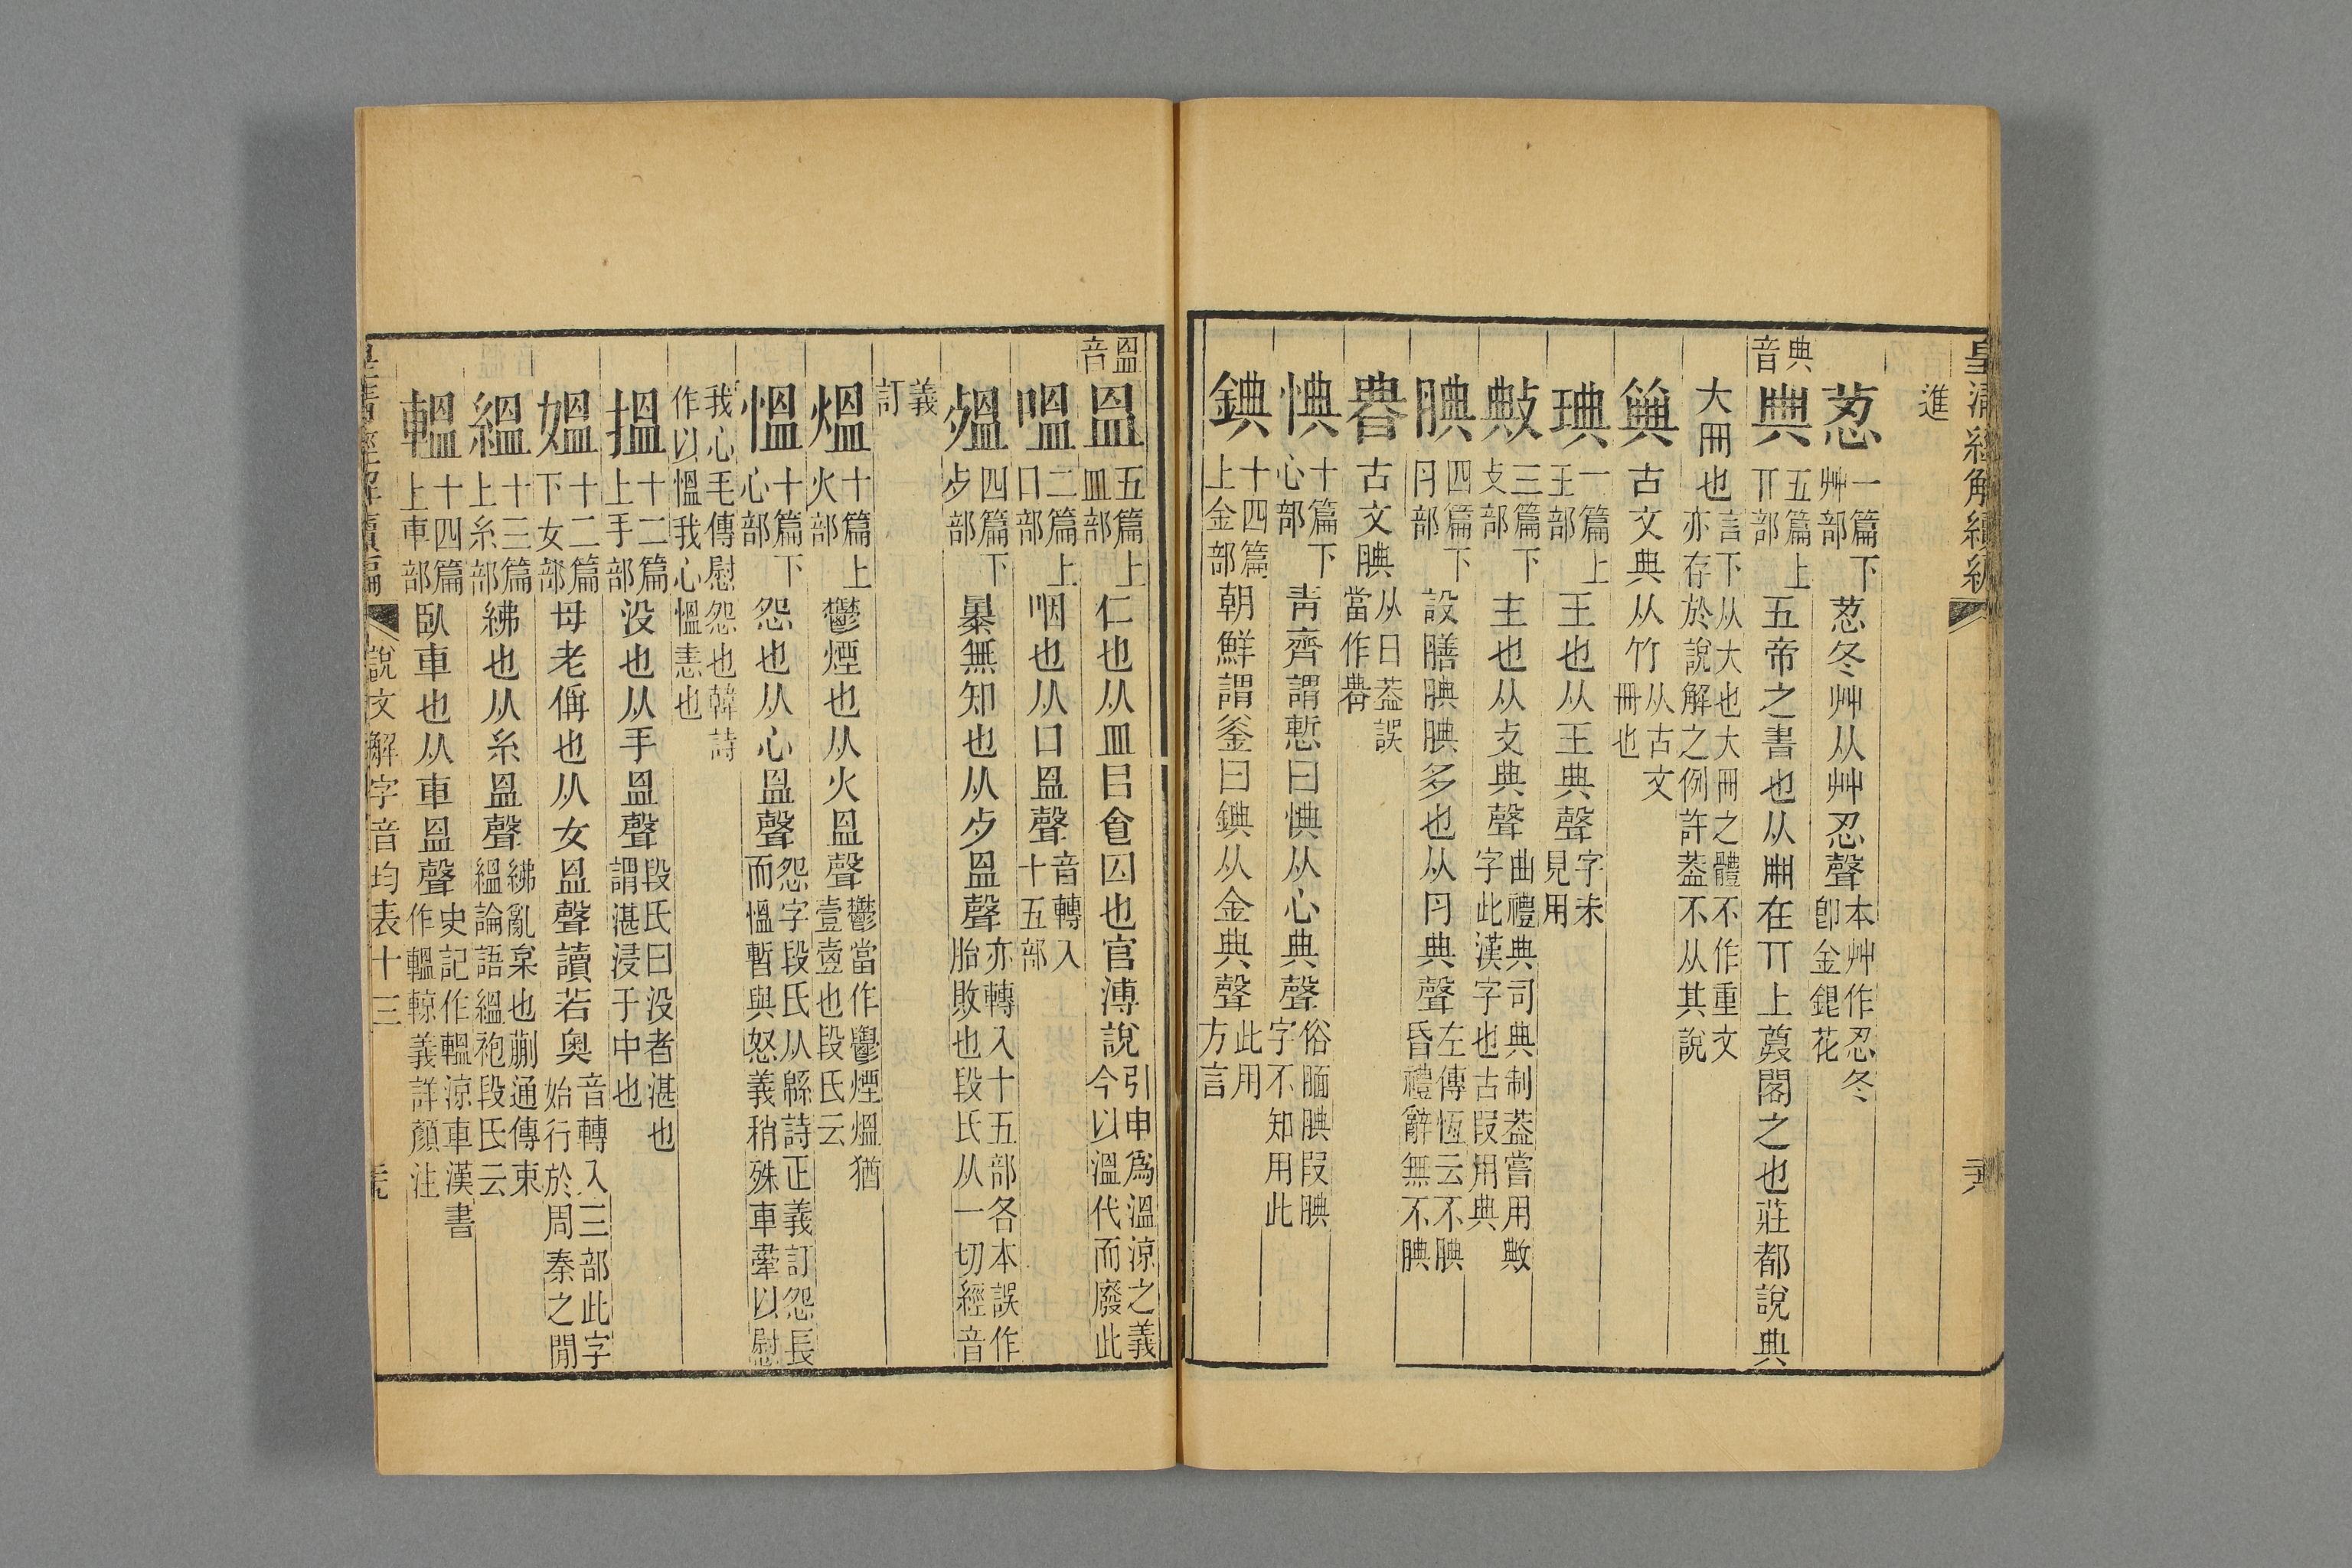 皇清經解續編
進
荵一篇下艸部荵冬艸从艸忍聲本艸作忍冬卽金銀花
典音
典五篇上丌部五帝之書也从冊在丌上尊閣之也莊都說典
大冊也言下从大也大冊之體不作重文亦存於說解之例許葢不从其說
籅古文典从竹从古文冊也
琠一篇上王部王也从王典聲字未見用
敟三篇下攴部主也从攴典聲曲禮典司典制葢嘗用敟字此漢字也古叚用典
腆四篇下肉部設膳腆腆多也从肉典聲左傳恆云不腆昏禮辭無不腆
古文腆从日葢誤當作
惧十篇下心部靑齊謂慙曰惧从心典聲俗靦腆叚腆字不知用此
錪十四篇上金部朝鮮謂釜曰錪从金典聲此用方言
𥁕音
𥁕五篇上皿部仁也从皿㠯食囚也官溥說引申爲溫涼之義今以溫代而廢此
嗢二篇上口部咽也从口𥁕聲音轉入十五部
殟四篇下歺部暴無知也从歺𥁕聲亦轉入十五部各本誤作胎敗也段氏从一切經音
義訂
熅十篇上火部鬱煙也从火𥁕聲鬱當作鬱煙熅猶壹㚃也段氏云
慍十篇下心部怨也从心𥁕聲怨字段氏从緜詩正義訂怨長而慍暫與怒義稍殊車舝以慰
我心毛傳慰怨也韓詩作以慍我心慍恚也
搵十二篇上手部没也从手𥁕聲段氏曰没者湛也謂湛浸于中也
媼十二篇下女部母老偁也从女𥁕聲讀若奥音轉入三部此字始行於周秦之閒
縕十三篇上糸部紼也从糸𥁕聲紼亂枲也蒯通傳束縕論語縕袍段氏云
轀十四篇上車部臥車也从車𥁕聲史記作轀涼車漢書作轀輬義詳顏注
說文解字音均表十三